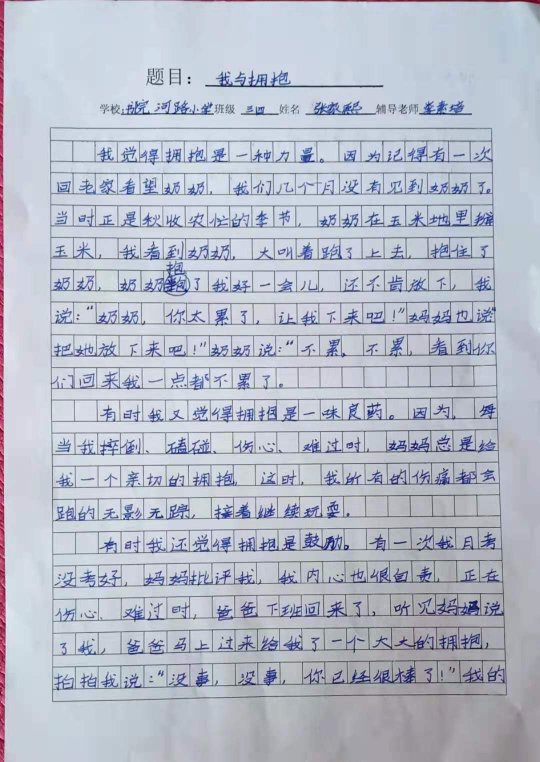 题目：我与拥抱
学校 书院河路小学 班级 三四 姓名 张家熙 辅导老师 李素培
我觉得拥抱是一种力量。因为记得有一次
回老家看望奶奶，我们几个月没有见到奶奶了。
当时正是秋收农忙的季节，奶奶在玉米地里掰
玉米，我看到奶奶，大叫着跑了上去，抱住了
奶奶，奶奶抱了我好一会儿，还不肯放下，我
说：“奶奶，你太累了，让我下来吧！”妈妈也说“
把她放下来吧！”奶奶说：“不累，不累，看到你
们回来我一点都不累了。
有时我又觉得拥抱是一味良药。因为，每
当我摔倒、磕碰、伤心、难过时，妈妈总是给
我一个亲切的拥抱，这时，我所有的伤痛都会
跑的无影无踪，接着继续玩耍。
有时我还觉得拥抱是鼓励。有一次我月考
没考好，妈妈批评我，我内心也很自责，正在
伤心、难过时，爸爸下班回来了，听见妈妈说
了我，爸爸马上过来给我了一个大大的拥抱，
拍拍我说：“没事，没事，你已经很棒了！”我的